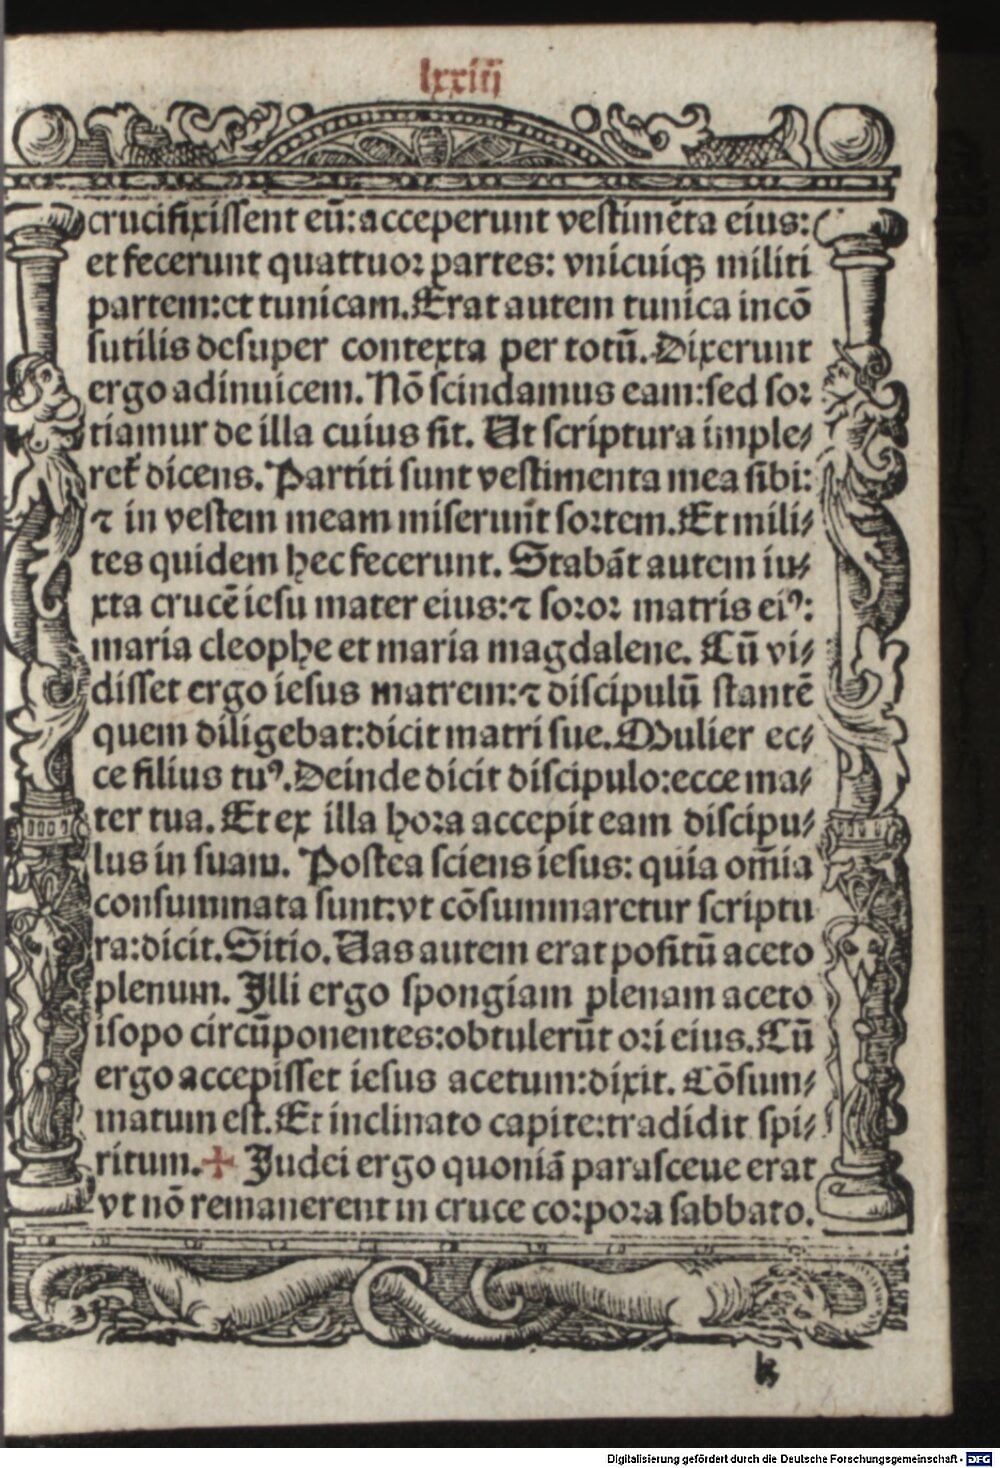 lxxiij
crucifixissent eū: acceperunt vestimēta eius:
et fecerunt quattuor partes: vnicuiqꝫ militi
partem: et tunicam. Erat autem tunica incō
sutilis desuper contexta per totū. Dixerunt
ergo adinuicem. Nō scindamus eam: sed sor
tiamur de illa cuius sit. Ut scriptura imple⸗
ret᷑ dicens. Partiti sunt vestimenta mea sibi:
⁊ in vestem meam miserunt sortem. Et mili⸗
tes quidem hec fecerunt. Stabāt autem iu⸗
xta crucē iesu mater eius: ⁊ soror matris eiꝰ:
maria cleophe et maria magdalene. Cū vi⸗
disset ergo iesus matrem: ⁊ discipulū stantē
quem diligebat: dicit matri sue. Mulier ec⸗
ce filius tuꝰ. Deinde dicit discipulo: ecce ma⸗
ter tua. Et ex illa hora accepit eam discipu⸗
lus in suam. Postea sciens iesus: quia om̄ia
consummata sunt: vt cōsummaretur scriptu
ra: dicit. Sitio. Uas autem erat positū aceto
plenum. Illi ergo spongiam plenam aceto
isopo circūponentes: obtulerūt ori eius. Cū
ergo accepisset iesus acetum: dixit. Cōsum⸗
matum est. Et inclinato capite: tradidit spi⸗
ritum. ✠ Judei ergo quoniā parasceue erat
vt nō remanerent in cruce corpora sabbato.
k
Digitalisierung gefördert durch die Deutsche Forschungsgemeinschaft - DFG